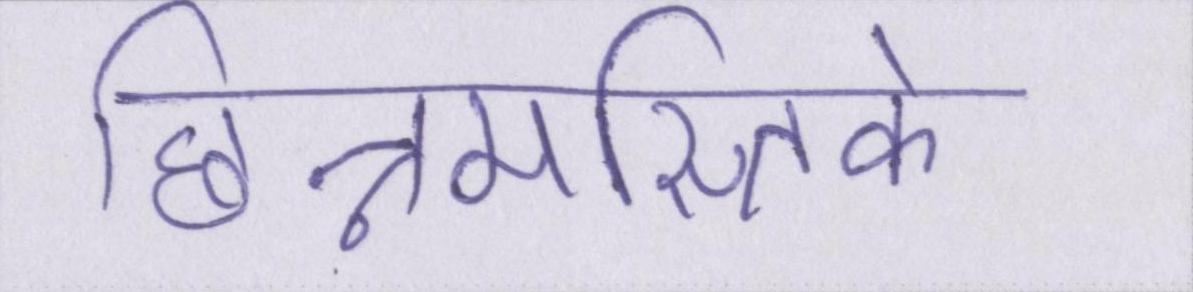 छिन्नमस्तिके